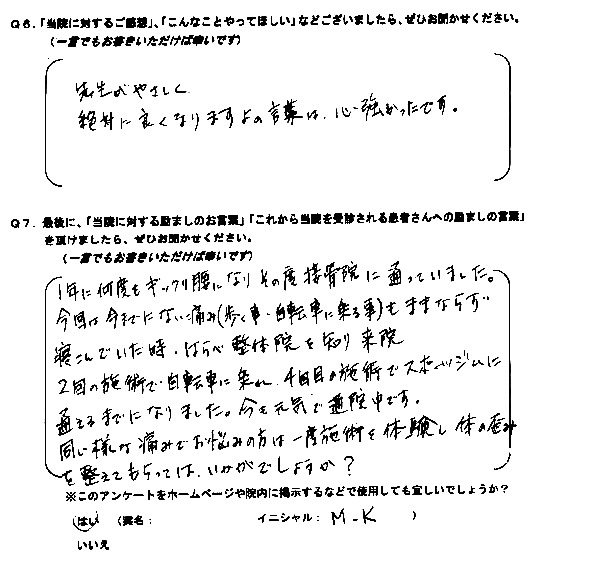 Q6.「当院に対するご感想」、「こんなことやってほしい」などございましたら、ぜひお聞かせください。
(一言でもお書きいただけば幸いです)
先生がやさしく
絶対に良くなりますよの言葉は、心強かったです。
Q7. 最後に、「当院に対する励ましのお言葉」「これから当院を受診される患者さんへの励ましの言葉」
を頂けましたら、ぜひお聞かせください。
(一言でもお書きいただけば幸いです)
1年に何度もギックリ腰になりその度接骨院に通っていました。
今回は今までにない痛み(歩く事・自転車に乗る事)もままならず
寝こんでいた時、はらべ整体院を知り来院
2回の施術で自転車に乗れ、4回目の施術でスポーツジムに
通えるまでになりました。今も元気で通院中です。
同じ様な痛みでお悩みの方は一度施術を体験し体の歪み
を整えてもらっては、いかがでしょうか?
※このアンケートをホームページや院内に掲示するなどで使用しても宜しいでしょうか?
はい (実名: イニシャル: M-K )
いいえ